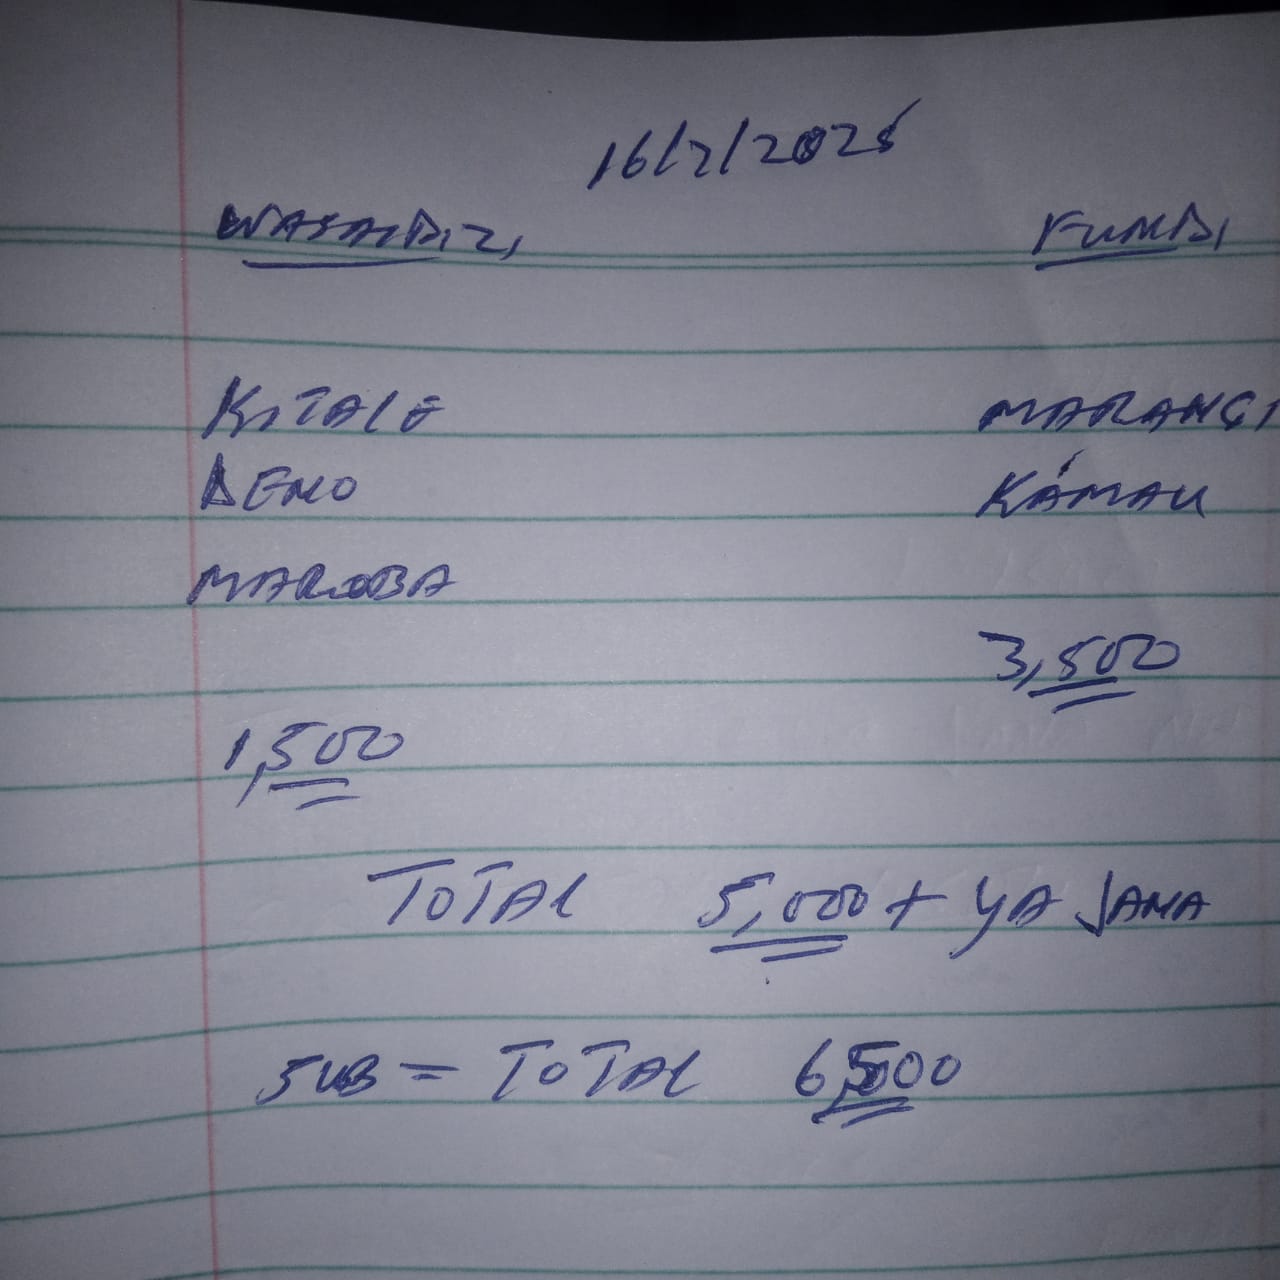 16/7/2025
WASAIDIZI FUNDI
KITALE MARANGI
DENO KAMAU
MAROBA
3,500
1,500
TOTAL 5,000 + YA JANA
SUB = TOTAL 6,500